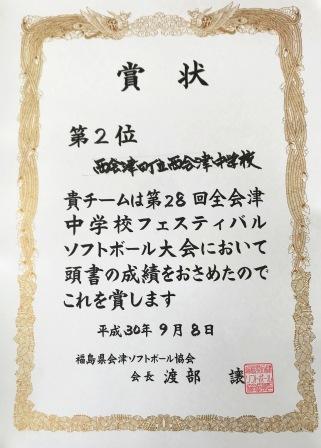 賞状
第2位
西会津町立西会津中学校
貴チームは第28回全会津
中学校フェスティバル
ソフトボール大会において
頭書の成績をおさめたので
これを賞します
平成30年9月8日
福島県会津ソフトボール協会
会長 渡部 譲